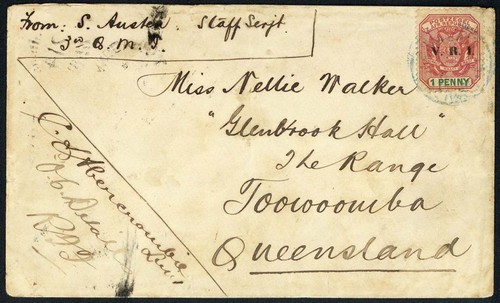 From: S. Austen Staff Serjt.
3rd B.M.I.
V.R.I.
1 PENNY
Miss Nellie Walker
"Glenbrook Hall"
The Range
Toowoomba
Queensland
C. J. Abercrombie
Lieut